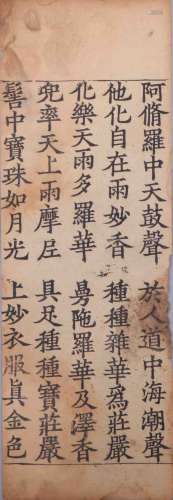 阿脩羅中天鼓聲　於人道中海潮聲
他化自在雨妙香　種種雜華為莊嚴
化樂天雨多羅華　曼陁羅華及澤香
兜率天上雨摩尼　具足種種寶莊嚴
髻中寶珠如月光　上妙衣服眞金色